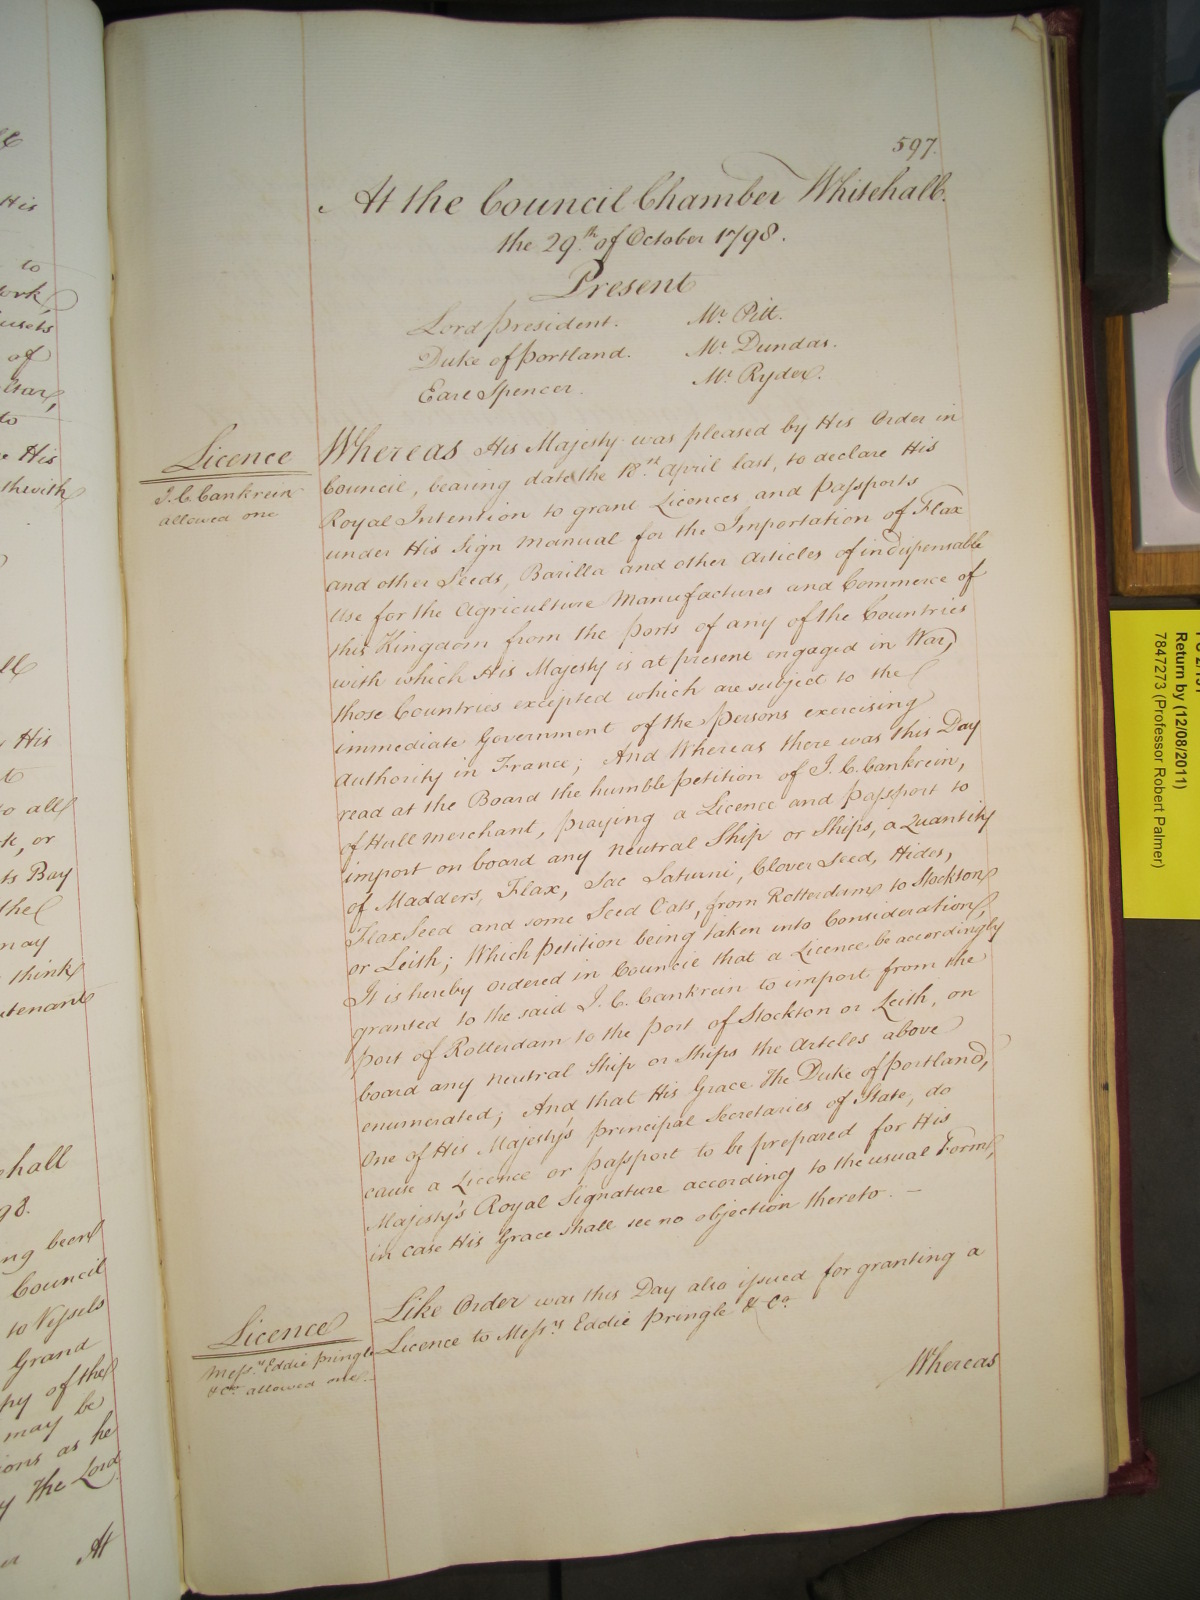 597.
At the Council Chamber Whitehall.
the 29th of October 1798.
Present
Lord President. Mr. Pitt.
Duke of Portland. Mr. Dundas.
Earl Spencer. Mr. Ryder.
Licence
J. C. Cankrein
allowed one
Whereas His Majesty was pleased by His Order in
Council, bearing date the 18th April last, to declare His
Royal Intention to grant Licences and Passports
under His Sign Manual for the Importation of Flax
and other Seeds, Barilla and other Articles of indispensable
Use for the Agriculture Manufactures and Commerce of
this Kingdom from the Ports of any of the Countries
with which His Majesty is at present engaged in War,
those Countries excepted which are subject to the
immediate Government of the Persons exercising
Authority in France; And Whereas there was this Day
read at the Board the humble Petition of J. C. Cankrein,
of Hull Merchant, praying a Licence and Passport to
import on board any neutral Ship or Ships, a Quantity
of Madders, Flax, Sac Saturni, Clover Seed, Hides,
Flax Seed and some Seed Oats, from Rotterdam to Stockton
or Leith; Which Petition being taken into Consideration,
It is hereby ordered in Council that a Licence be accordingly
granted to the said J. C. Cankrein to import from the
Port of Rotterdam to the Port of Stockton or Leith, on
board any neutral Ship or Ships the Articles above
enumerated; And, that His Grace The Duke of Portland,
One of His Majesty's principal Secretaries of State, do
cause a Licence or Passport to be prepared for His
Majesty's Royal Signature according to the usual Form,
in case His Grace shall see no objection thereto. —
Licence
Messrs. Eddie Pringle
& Co. allowed one.
Like Order was this Day also issued for granting a
Licence to Messrs. Eddie Pringle & Co.
Whereas
His
to
of
to
His
His
to all
or
Bay
the
may
think
hall
98.
been
Council
to Vessels
Grand
of the
may be
as he
The Lord
At
Return by (12/08/2011)
7847273 (Professor Robert Palmer)